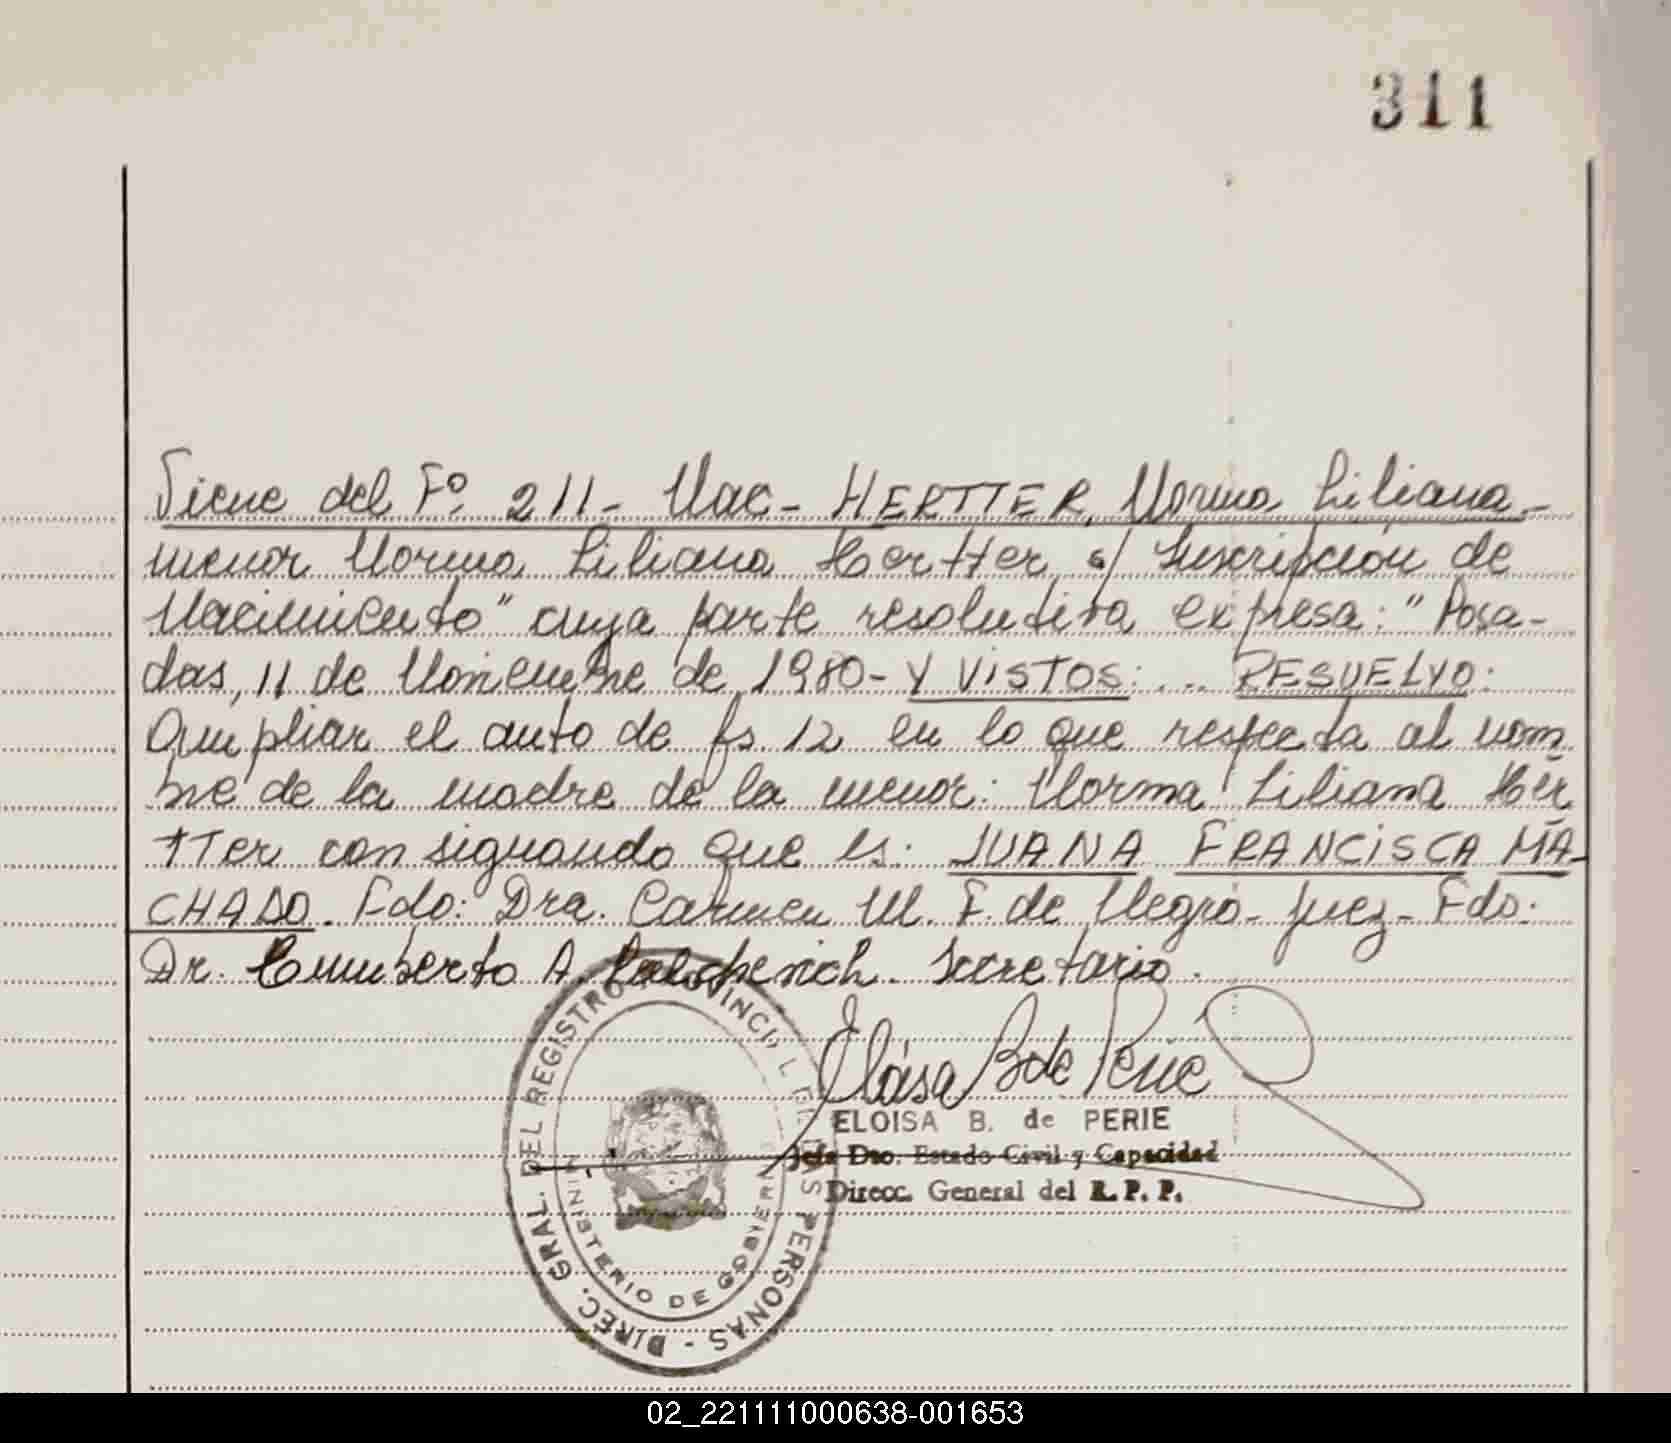 311
Viene del Fº 211- Nac- HERTTER, Norma Liliana.-
menor Norma Liliana Hertter s/ Inscripción de
Nacimiento" cuya parte resolutiva expresa: "Posa-
das, 11 de Noviembre de 1980- Y VISTOS: ... RESUELVO:
Ampliar el auto de fs. 12 en lo que respecta al nom
bre de la madre de la menor: Norma Liliana Her
tter consignando que es: JUANA FRANCISCA MA-
CHADO. Fdo: Dra. Carmen M. F. de Negro- Juez- Fdo.
Dr. Humberto A. Secretario.
Eloisa B de Perie
ELOISA B. de PERIE
Jefa Dto. Estado Civil y Capacidad
Direcc. General del R. P. P.
DIREC. GRAL. DEL REGISTRO PROVINCIAL DE LAS PERSONAS -
MINISTERIO DE GOBIERNO
02_221111000638-001653